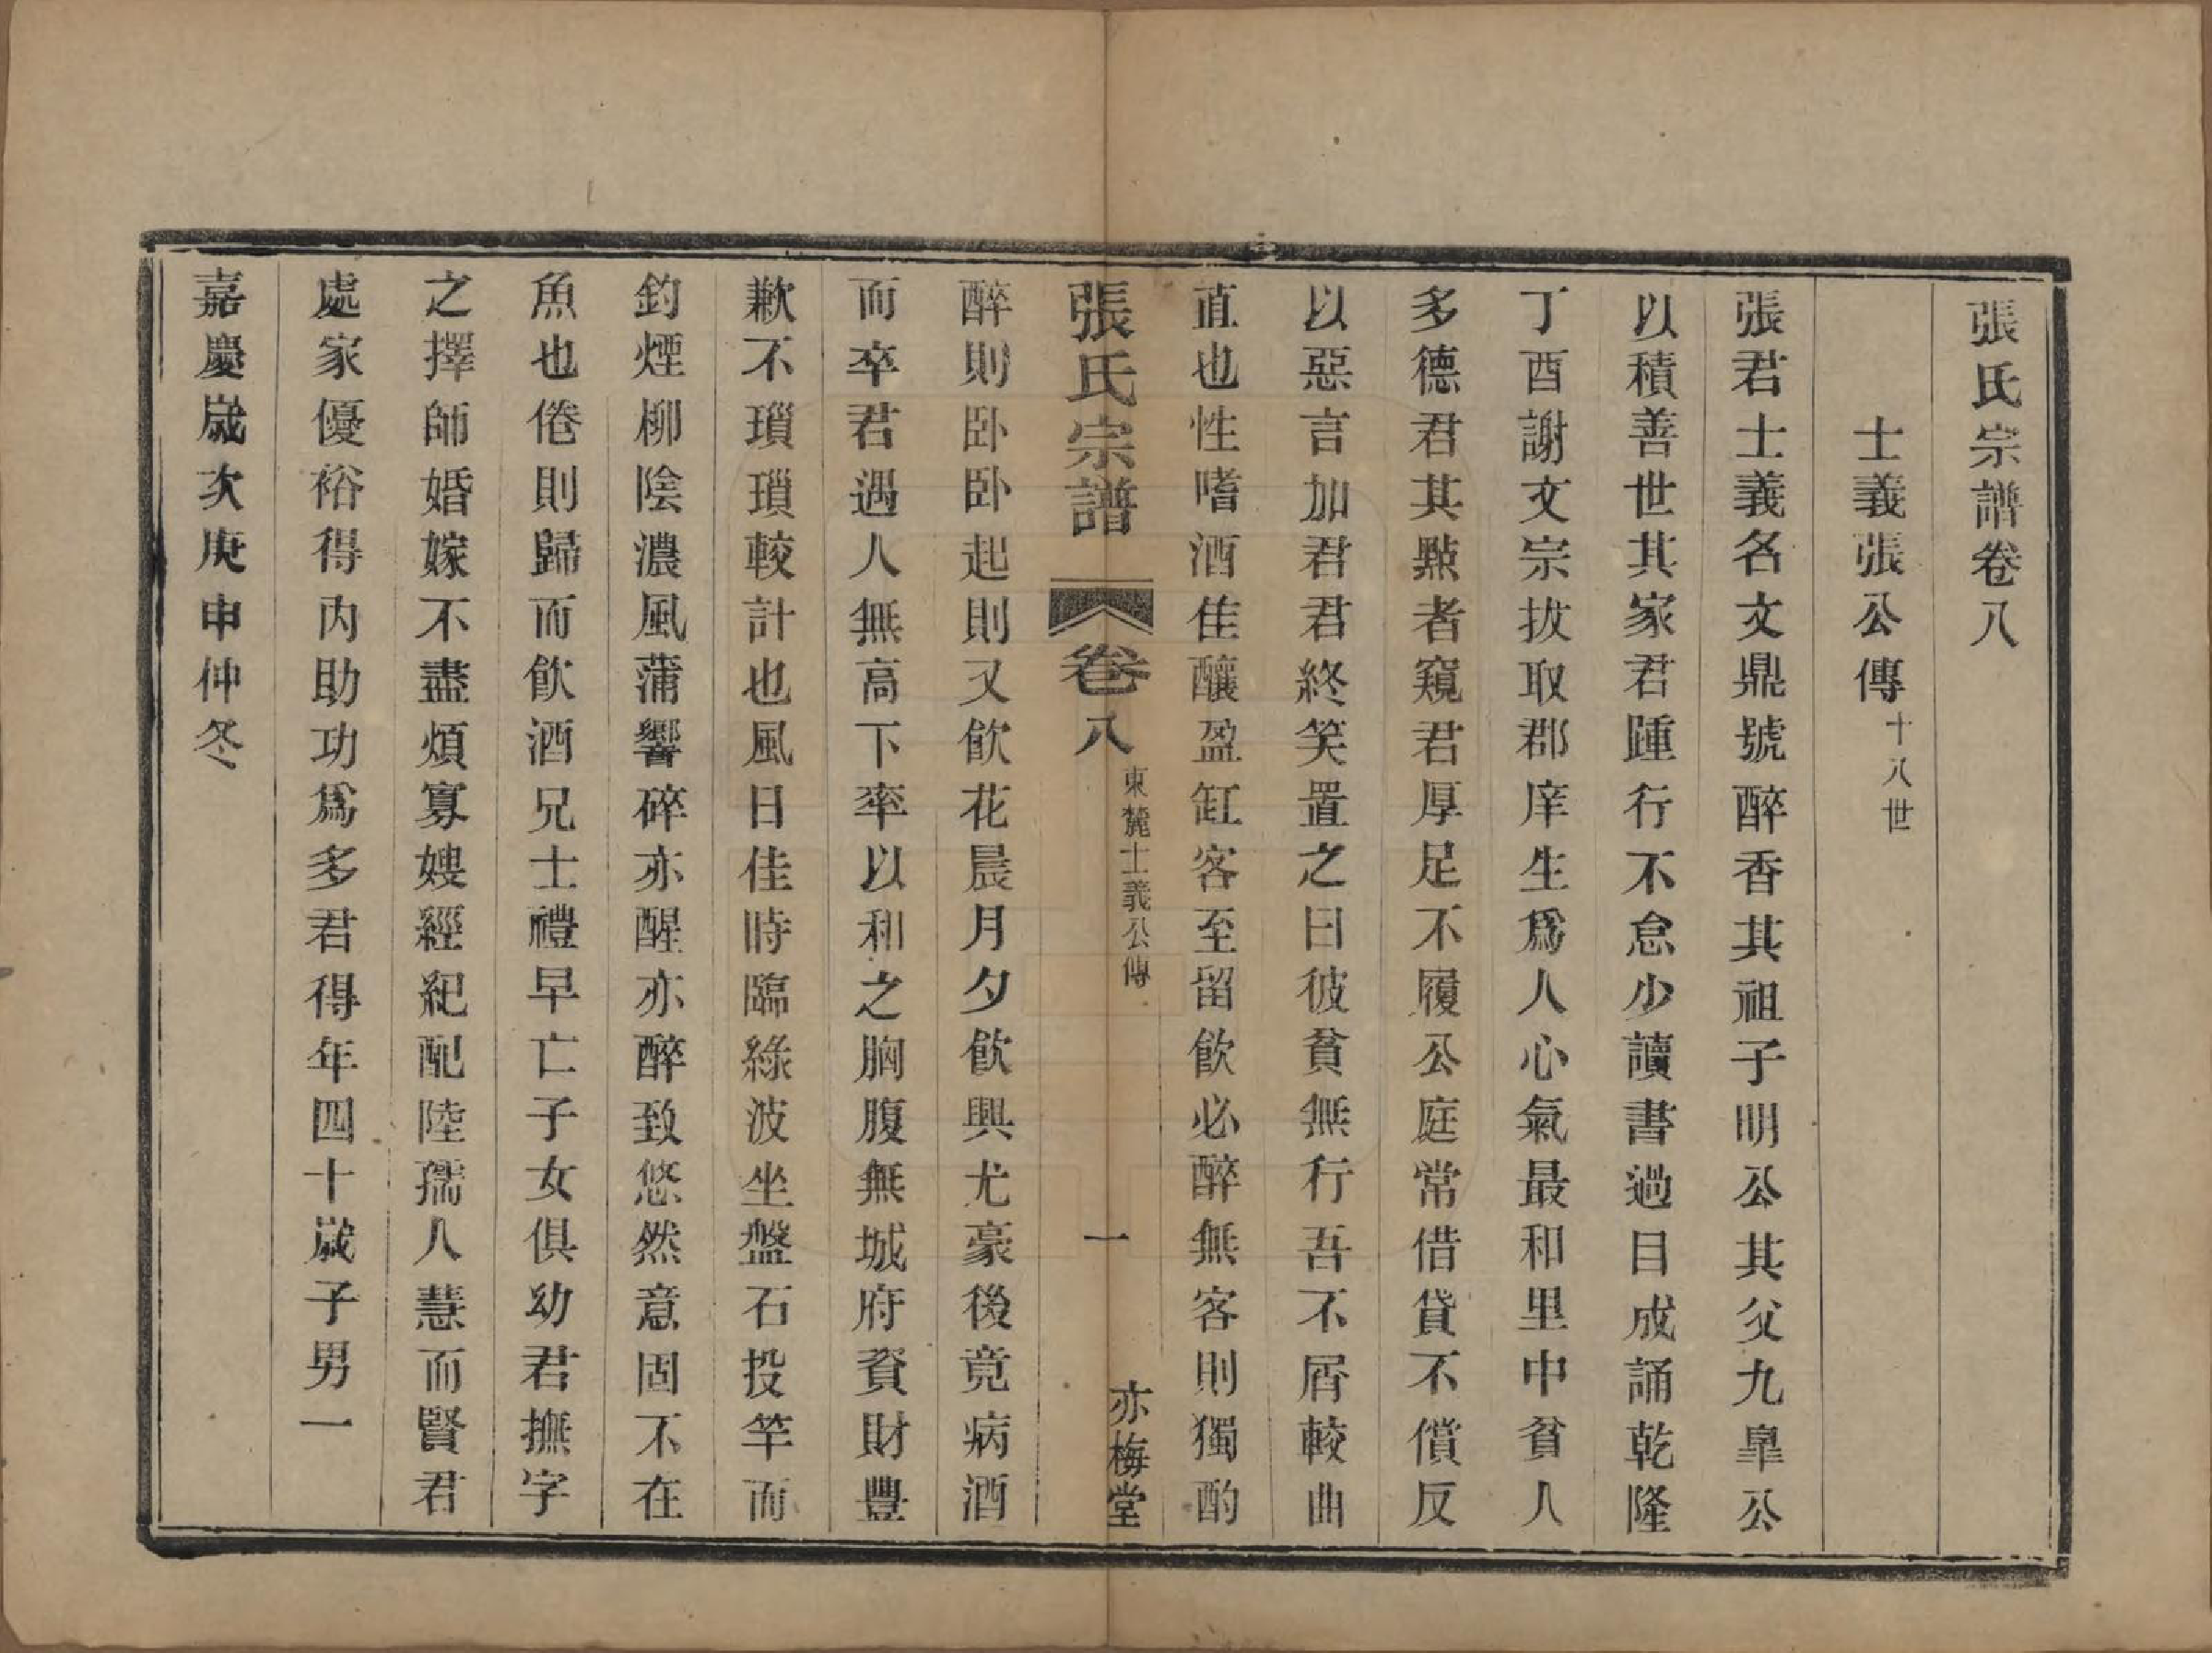 張氏宗譜卷八
士義張公傳十八世
張君士義名文鼎號醉香其祖子明公其父九臯公
以積善世其家君踵行不怠少讀書過目成誦乾隆
丁酉謝文宗拔取郡庠生爲人心氣最和里中貧人
多德君其點者窺君厚足不履公庭常借貸不償反
以惡言加君君終笑置之曰彼貧無行吾不屑較曲
直也性嗜酒佳釀盈缸客至留飮必醉無客則獨酌
張氏宗譜 卷八 東麓士義公傳 一 亦梅堂
醉則卧卧起則又飮花晨月夕飮興尤豪後竟病酒
而卒君遇人無高下率以和之胸腹無城府資財豐
歉不瑣瑣較計也風日佳時臨綠波坐盤石投竿而
釣煙柳陰濃風蒲響碎亦醒亦醉致悠然意固不在
魚也倦則歸而飮酒兄士禮早亡子女俱幼君撫字
之擇師婚嫁不盡煩寡嫂經紀配陸孺人慧而賢君
處家優裕得内助功爲多君得年四十歲子男一
嘉慶歲次庚申仲冬